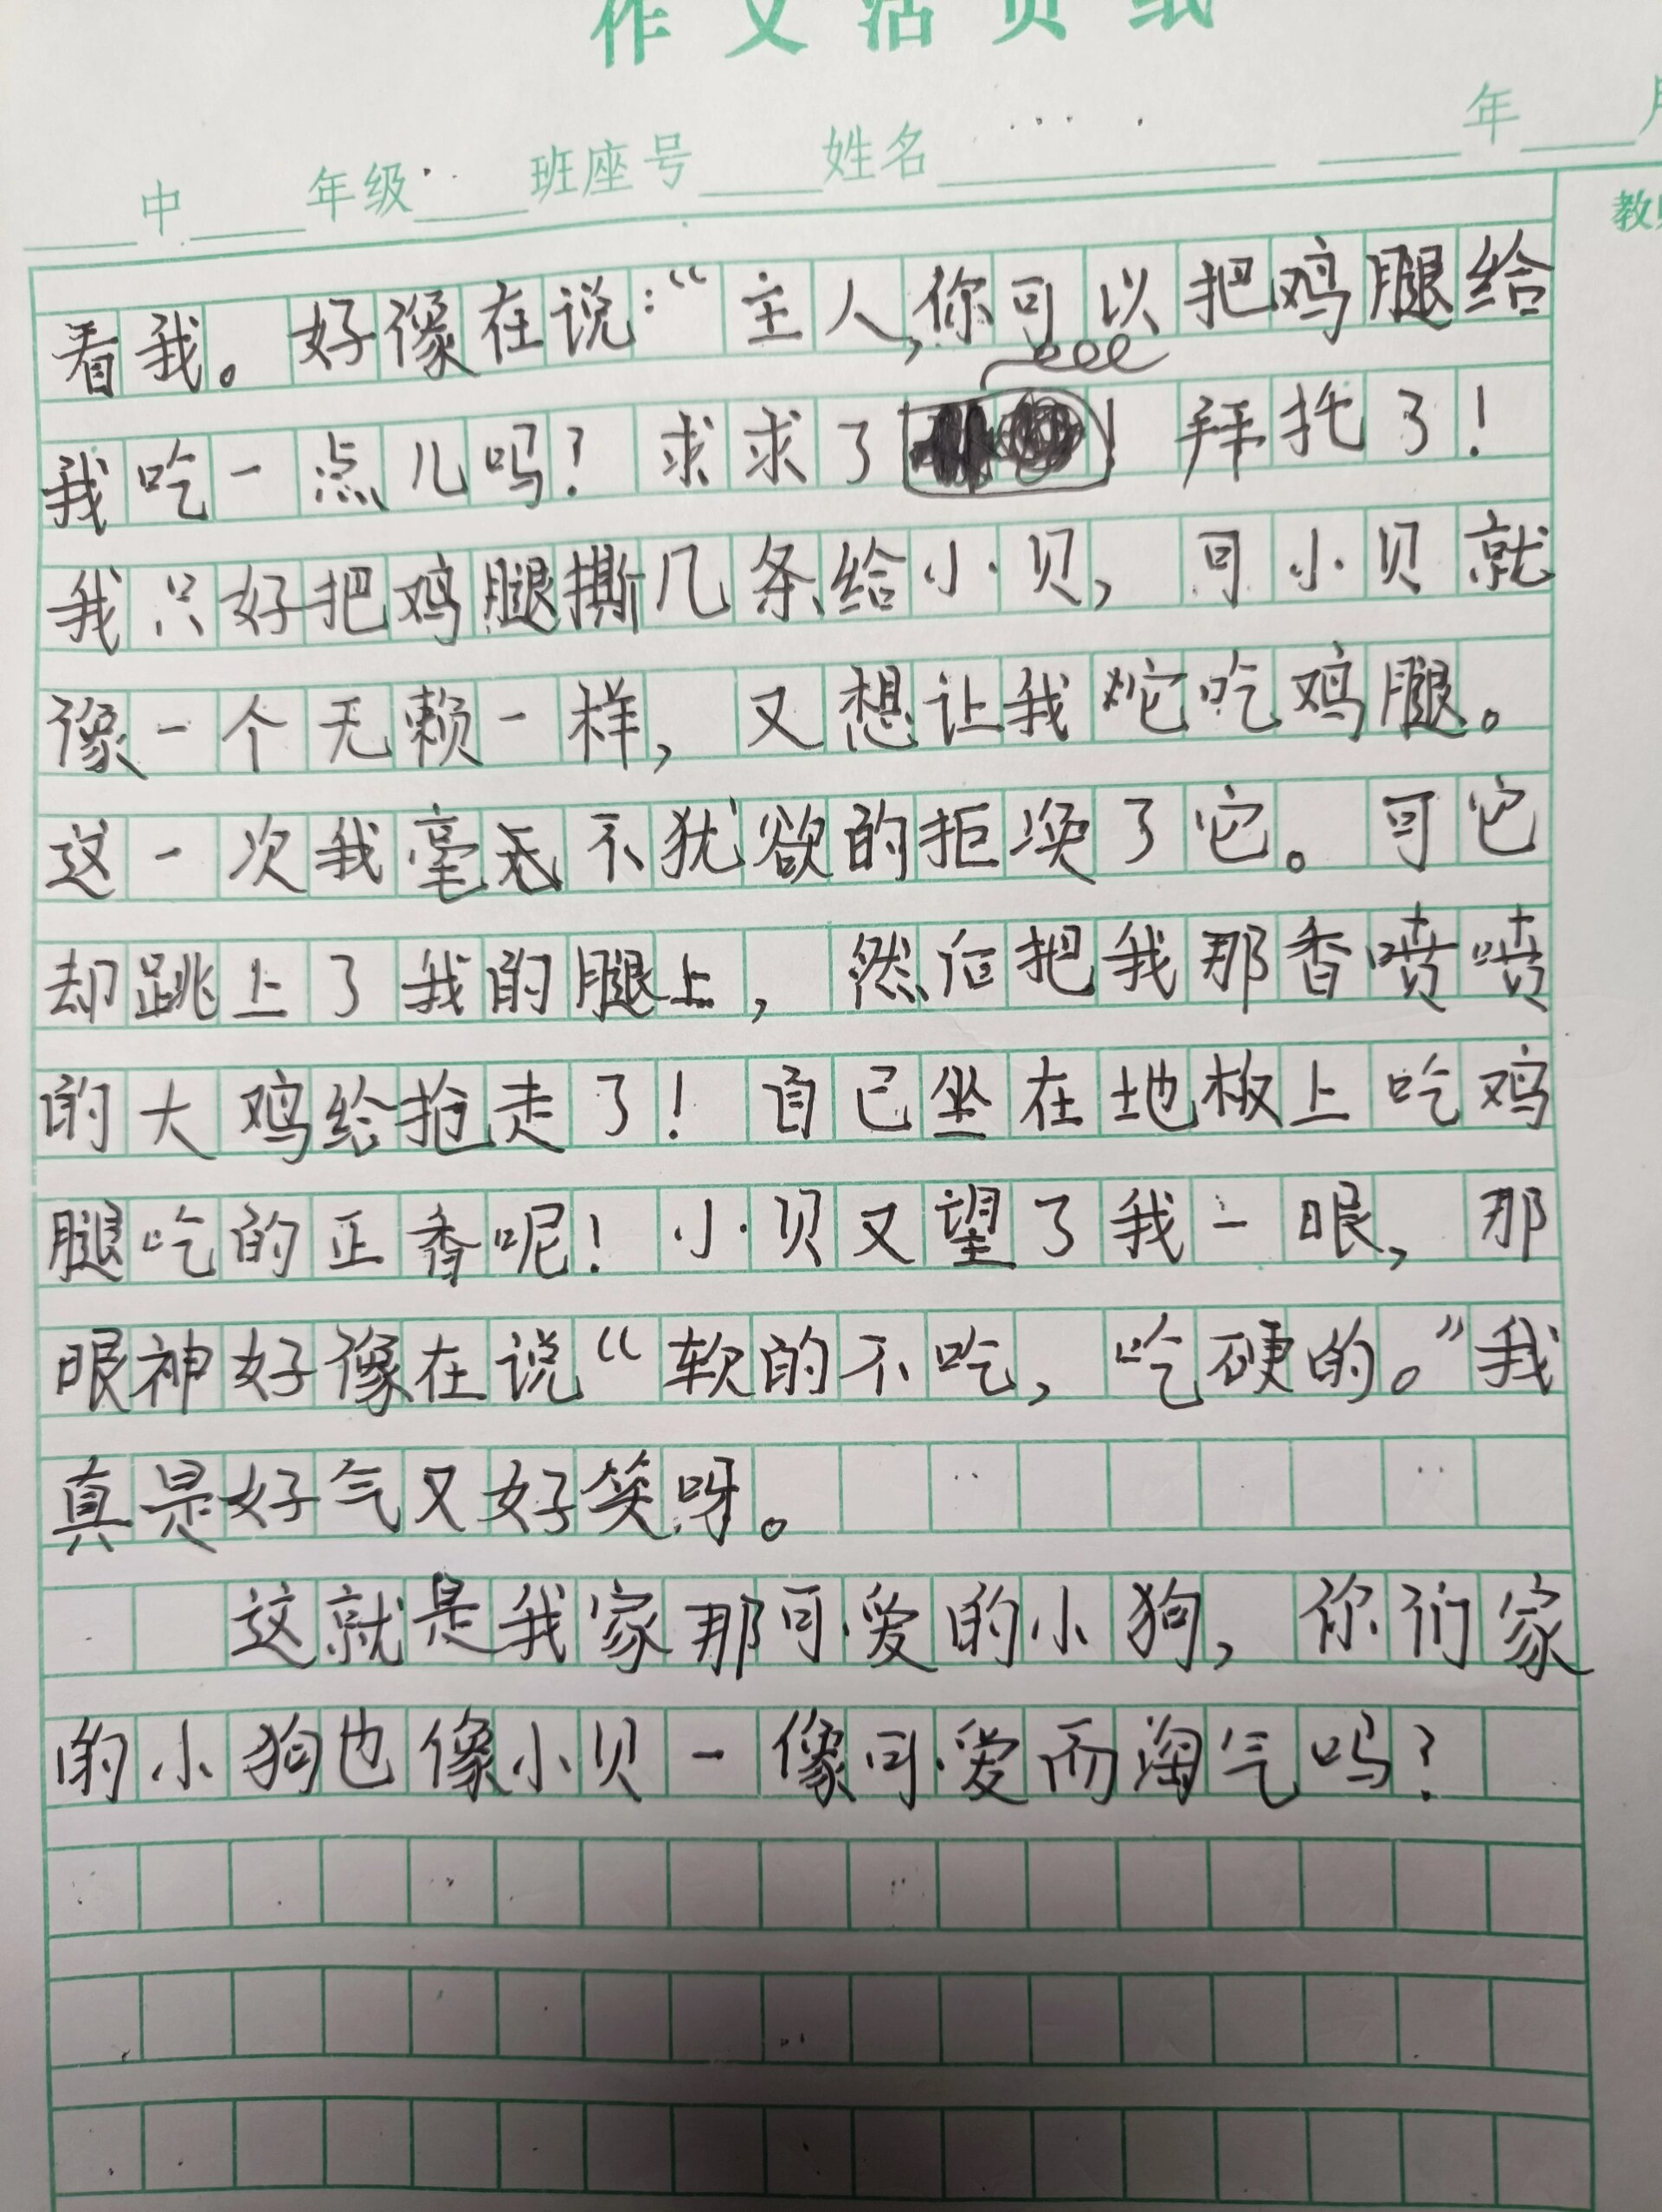 作文活页纸
中 年级 班座号 姓名 年 月
教师
看我。好像在说：“主人，你可以把鸡腿给
我吃一点儿吗？求求了！拜托了！
我只好把鸡腿撕几条给小贝，可小贝就
像一个无赖一样，又想让我它吃鸡腿。
这一次我毫无不犹欲的拒涣了它。可它
却跳上了我的腿上，然后把我那香喷喷
的大鸡给抢走了！自己坐在地板上吃鸡
腿吃的正香呢！小贝又望了我一眼，那
眼神好像在说“软的不吃，吃硬的。”我
真是好气又好笑呀。
这就是我家那可爱的小狗，你们家
的小狗也像小贝一像可爱而淘气吗？